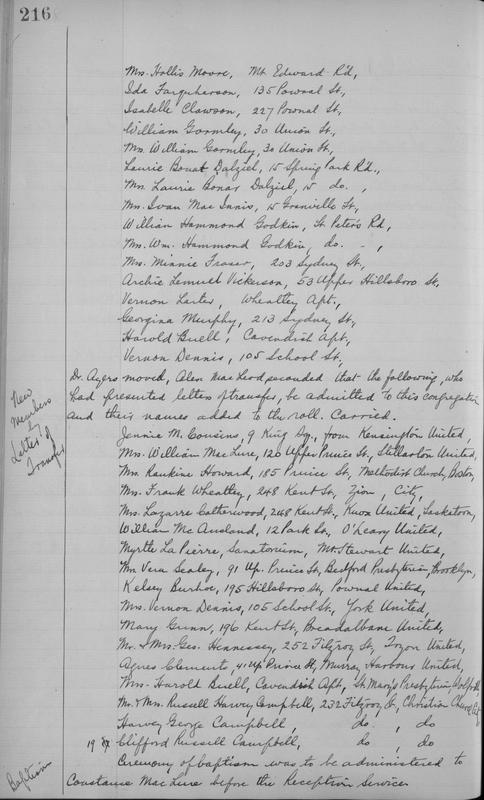 216
Mrs. Hollis Moore, Mt. Edward R'd,
Ida Farquharson, 135 Pownal St,
Isabelle Clawson, 227 Pownal St,
William Gormley, 30 Union St,
Mrs. William Gormley, 30 Union St,
Laurie Bonar Dalziel, 15 Spring Park Rd.,
Mrs. Laurie Bonar Dalziel, 15 do. ,
Mrs. Ivan Mac Innis, 15 Granville St,
William Hammond Godkin, St. Peter's Rd,
Mrs. Wm. Hammond Godkin, do. - ,
Mrs. Minnie Fraser, 203 Sydney St,
Archie Lemuel Vickerson, 53 Upper Hillsboro St,
Vernon , Wheatley Apt.,
Georgina Murphy, 213 Sydney St,
Harold Buell, Cavendish Apt,
Vernon Dennis, 105 School St.
Dr. Ayers moved, Alex MacLeod seconded that the following, who
had presented letters of transfer, be admitted to this congregation
and their names added to the roll. Carried.
New Members by Letter of Transfer
Jennie M. Cousins, 9 King Sq., from Kensington United,
Mrs. William MacLure, 120 Upper Prince St., Stellarton United,
Mrs. Rankine Howard, 185 Prince St, Methodist Church, Boston,
Mrs. Frank Wheatley, 248 Kent St, Zion, City,
Mrs. Lazarre Catterwood, 248 Kent St, Knox United, Saskatoon,
William Mc Ausland, 12 Park St., O'Leary United,
Myrtle La Pierre, Sanatorium, Mt. Stewart United,
Mrs Vera Sealey, 91 Up. Prince St, Bedford Presbyterian, Brooklyn,
Kelsey Burhoe, 195 Hillsboro St, Pownal United,
Mrs. Vernon Dennis, 105 School St, York United,
Mary Gunn, 196 Kent St, Breadalbane United,
Mr. & Mrs. Geo. Hennessey, 252 Fitzroy St, Tryon United,
Agnes Clements, 4 Up Prince St, Murray Harbour United,
Mrs. Harold Buell, Cavendish Apt, St. Mary's Presbyterian,
Mr. & Mrs. Russell Harvey Campbell, 232 Fitzroy St, Christian Church, City
Harvey George Campbell, do , do
19 Clifford Russell Campbell, do , do
Baptism
Ceremony of baptism was to be administered to
Constance MacLure before the Reception Service.